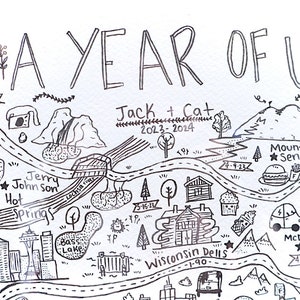 A YEAR OF U
Jack + Cat
2023-2024
Jerry
Johnson
Hot
Springs
Moun
Sen
Bass
Lake
T.P.
T.P.
McD
Wisconsin Dells
I-90